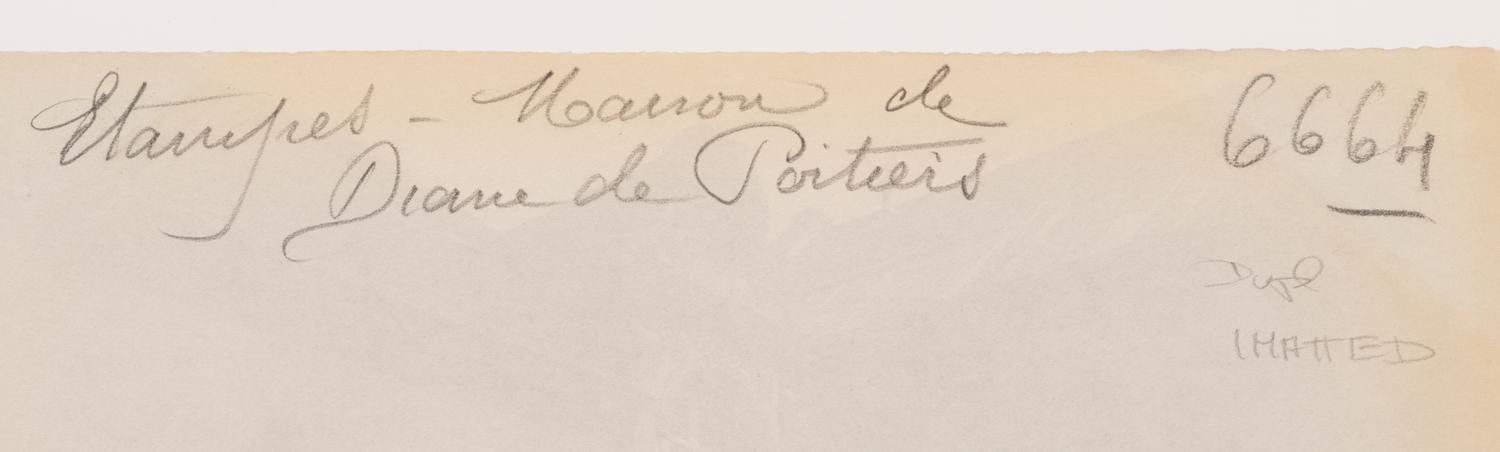 Etampes - Maison de
Diane de Poitiers
6664
Dupl
1 MATTED